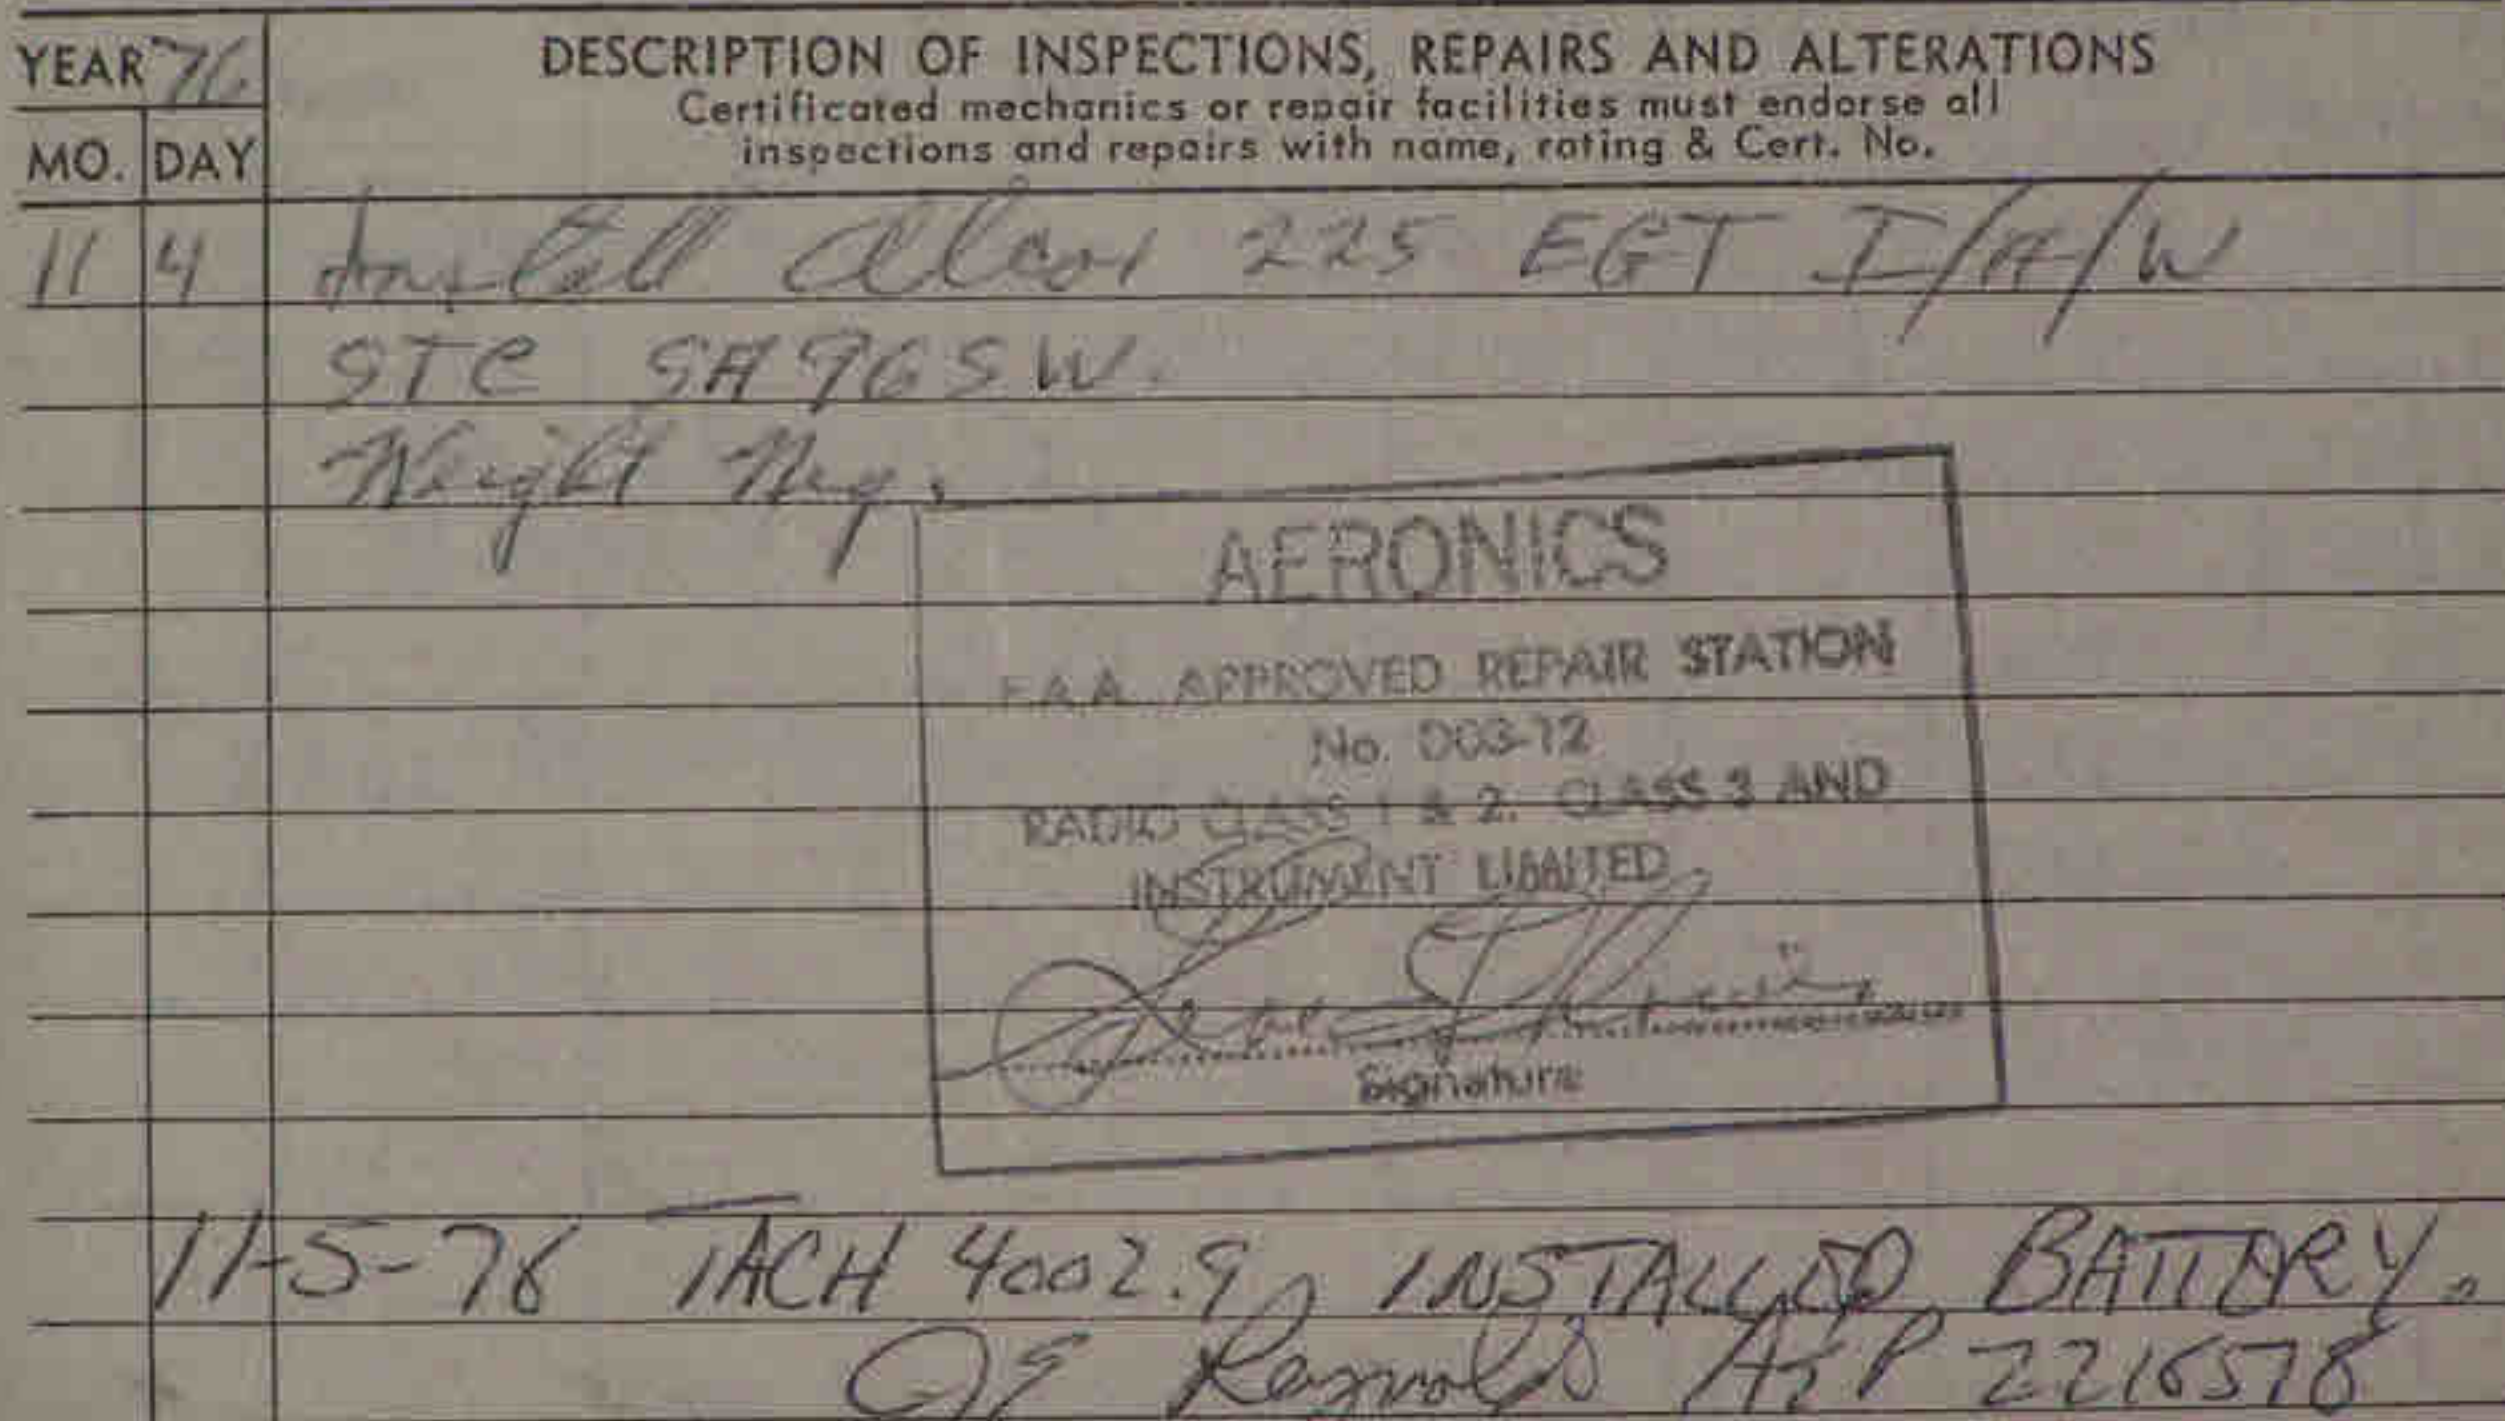 YEAR 76
DESCRIPTION OF INSPECTIONS, REPAIRS AND ALTERATIONS
Certificated mechanics or repair facilities must endorse all
inspections and repairs with name, rating & Cert. No.
MO. DAY
11 4 Install Alcor 225 EGT I/A/W
STC SA965W.
Weight Neg.
AERONICS
F.A.A. APPROVED REPAIR STATION
No. D03-12
RADIO CLASS 1 & 2. CLASS 3 AND
INSTRUMENT LIMITED
Signature
11-5-76 TACH 4002.9 INSTALLED BATTERY.
Reynolds A&P 2216578